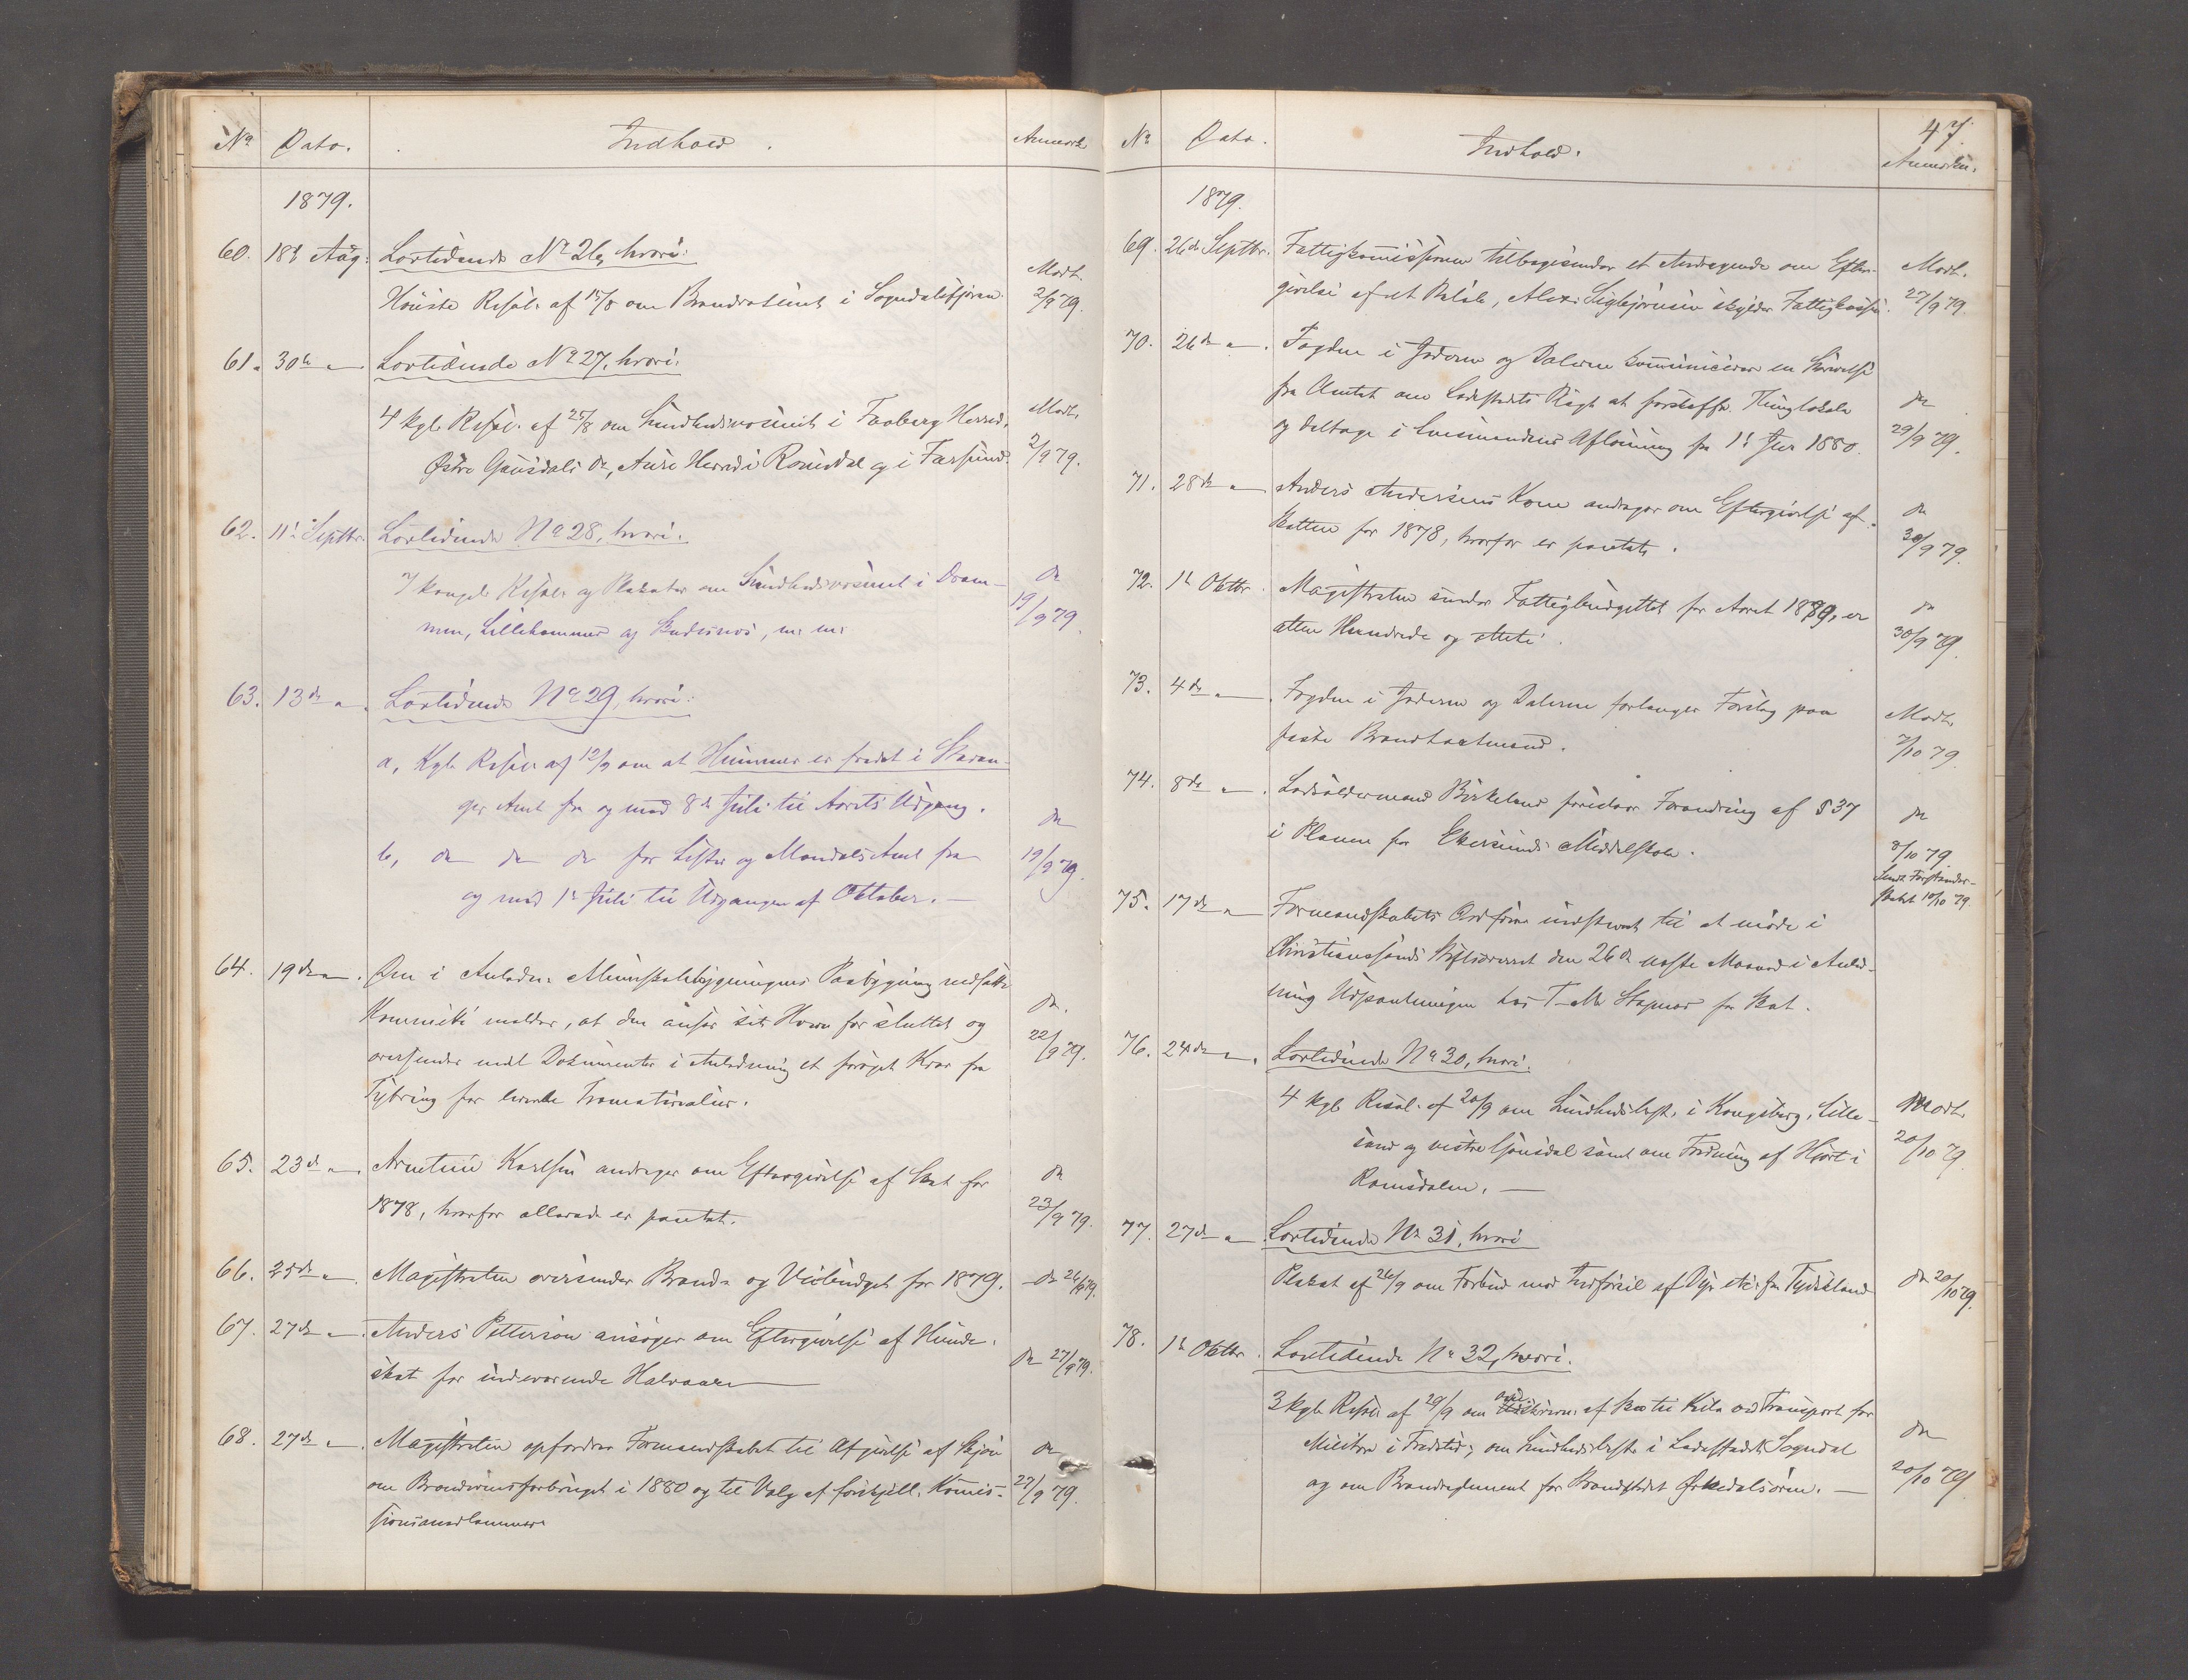 No Dato. Indhold. Anmærk.
1879.
60. 18de Aug: Lovtidende No 26, hvori:
Høieste Resol. af 15/8 om Brandvæsenet i Sogndalsfjæren. Modt. 2/9 79.
61. 30te " Lovtidende No 27, hvori:
4 kgl. Resol. af 25/8 om Sundhedsvæsenet i Faaberg Herred, Modt.
Østre Gausdals do, Aure Herred i Romsdal og i Farsund. 2/9 79.
62. 11te Septbr. Lovtidende No 28, hvori:
7 kongl. Resol. og Plakater om Sundhedsvæsenet i Dram- do
men, Lillehammer og Skudesnæs, m. m. 19/9 79.
63. 13de " Lovtidende No 29, hvori:
a, Kgl. Resol. af 12/9 om at Hummer er fredet i Stavan-
ger Amt fra og med 8de Juli til Aarets Udgang. do
b, do do do for Lister og Mandals Amt fra 19/9 79.
og med 1ste Juli til Udgangen af Oktober. —
64. 19de " Den i Anledn. Almueskolebygningens Paabygning nedsatte
Kommite melder, at den anser sit Hverv for sluttet og do.
oversender endel Dokumenter i Anledning et forøget Krav fra 22/9 79.
Tybring for leverede Træmaterialier.
65. 23de " Arnetine Karlsen andrager om Eftergivelse af Skat for do
1878, hvorfor allerede er pantet. 23/9 79.
66. 25de " Magistraten oversender Brand- og Veibudget for 1879. do 26/9 79.
67. 27de " Anders Petterson ansøger om Eftergivelse af Hunde-
skat for indeværende Halvaar do 27/9 79.
68. 27de " Magistraten opfordrer Formandskabet til Afgivelse af Skjøn do
om Brændevinsforbruget i 1880 og til Valg af forskjell. Komis- 27/9 79.
sionsmedlemmer
47.
No Dato. Indhold. Anmærkn.
1879.
69. 26de Septbr. Fattigkommissionen tilbagesender et Andragende om Efter- Modt.
givelse af et Beløb, Alex. Sigbjørnsen skylder Fattigkassen. 27/9 79
70. 26de " Fogden i Jæderen og Dalerne kommunicerer en Skrivelse
fra Amtet om Ladestedets Pligt at forskaffe Thinglokale do
og deltage i Lensmandens Aflønning fra 1ste Jan 1880. 29/9 79.
71. 28de " Anders Andersens Kone andrager om Eftergivelse af do
Skatten for 1878, hvorfor er pantet. 30/9 79.
72. 1ste Oktbr. Magistraten sender Fattigbudgettet for Aaret 1880, er do
atten Hundrede og otteti. 30/9 79.
73. 4de " Fogden i Jæderen og Dalerne forlanger Forslag paa Modt.
faste Brandtaxtmænd. 7/10 79.
74. 8de " Lodsoldermand Birkeland foreslaar Forandring af § 37 do
i Planen for Ekersunds Middelskole. 8/10 79.
Sendt Forstander-
skabet 10/10 79.
75. 17de " Formandskabets Ordfører indstevnt til at møde i
Christianssands Stiftsoverret den 26de næste Maaned i Anled-
ning Udpantningen hos T. M. Stapnæs for Skat.
76. 24de " Lovtidende No 30, hvori:
4 kgl. Resol. af 20/9 om Sundhedsbest. i Kongsberg, Lille- Modt.
sand og vestre Gausdal samt om Fredning af Hjort i 20/10 79.
Romsdalen. —
77. 27de " Lovtidende No 31, hvori
Plakat af 26/9 om Forbud mod Indførsel af Dyr etc. fra Tydskland do 20/10 79.
78. 1ste Oktbr. Lovtidende No 32, hvori:
3 kgl. Resol. af 29/9 om af til ved Transport for
Militære i Fredstid; om Sundhedsbest. i Ladestedet Sogndal do
og om Brandreglement for Strandstedet Ørkedalsøren. — 20/10 79